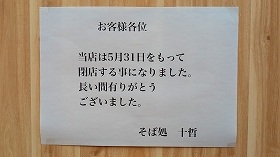 お客様各位
当店は5月31日をもって
閉店する事になりました。
長い間有りがとう
ございました。
そば処　十哲